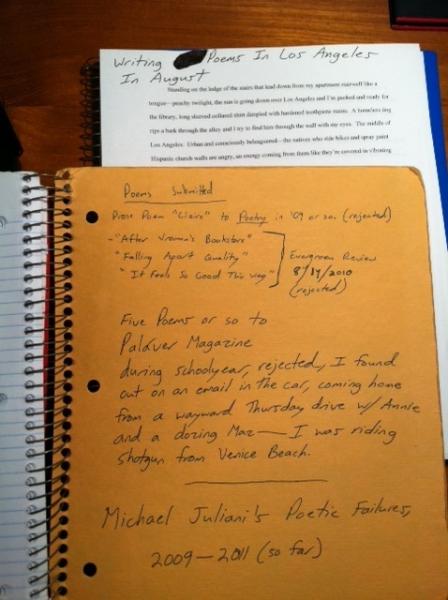 Writing Poems In Los Angeles
In August
Standing on the ledge of the stairs that lead down from my apartment stairwell like a
tongue—peachy twilight, the sun is going down over Los Angeles and I'm packed and ready for
the library, long sleeved collared shirt dappled with hardened toothpaste stains. A homeless
rips a bark through the alley and I try to find him through the wall with my eyes. The middle of
Los Angeles. Urban and consciously beleaguered—the natives who ride bikes and spray paint
Hispanic church walls are angry, an energy coming from them like they're covered in vibrating
Poems Submitted
Prose Poem "Claire" to Poetry in '09 or so. (rejected)
- "After Vroman's Bookstore"
"Falling Apart Quality"
"It Feels So Good This Way"
Evergreen Review
8/14/2010
(rejected)
Five Poems or so to
Palaver Magazine
during schoolyear, rejected, I found
out on an email in the car, coming home
from a wayward Thursday drive w/ Annie
and a dozing Maz — I was riding
shotgun from Venice Beach.
Michael Juliani's Poetic Failures,
2009—2011 (so far)